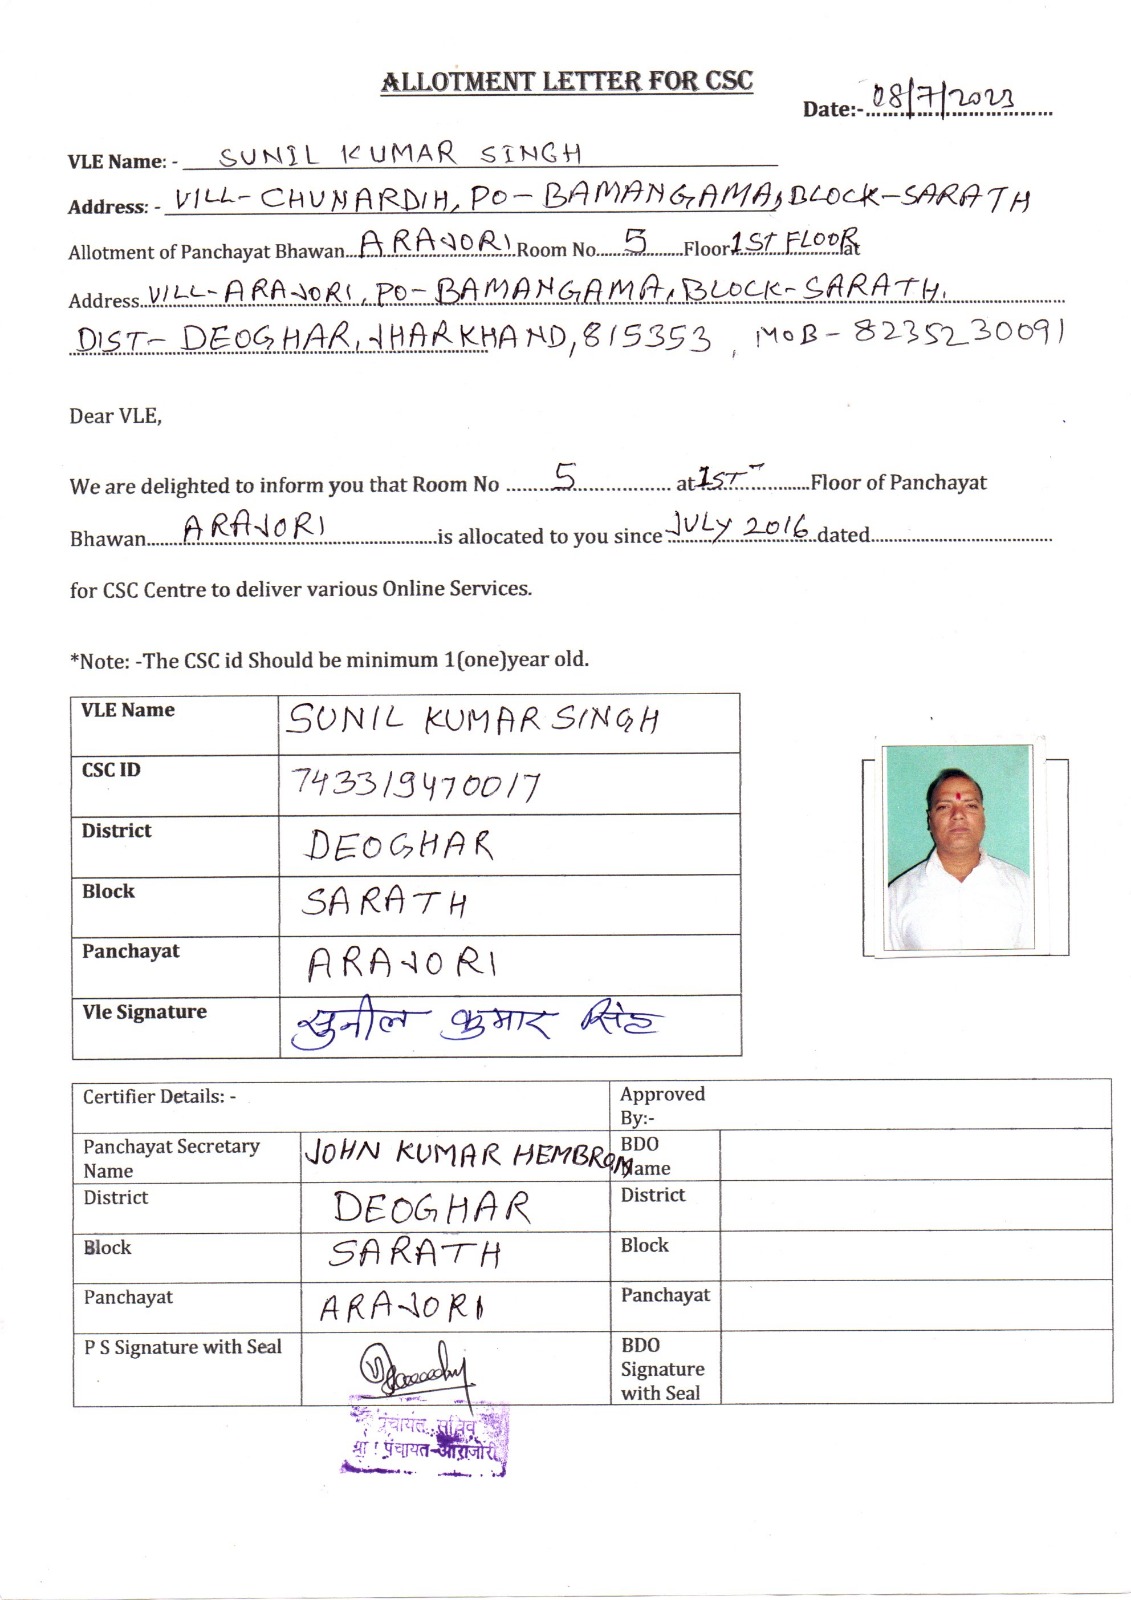 ALLOTMENT LETTER FOR CSC
Date:- 08/7/2023
VLE Name: - SUNIL KUMAR SINGH
Address: - VILL-CHUNARDIH, PO-BAMANGAMA, BLOCK-SARATH
Allotment of Panchayat Bhawan ARAJORI Room No. 5 Floor 1ST FLOOR at
Address VILL-ARAJORI, PO-BAMANGAMA, BLOCK-SARATH.
DIST- DEOGHAR, JHARKHAND, 815353, MOB-8235230091
Dear VLE,
We are delighted to inform you that Room No 5 at 1ST Floor of Panchayat
Bhawan ARAJORI is allocated to you since JULY 2016 dated
for CSC Centre to deliver various Online Services.
*Note: -The CSC id Should be minimum 1(one)year old.
VLE Name SUNIL KUMAR SINGH
CSC ID 743319470017
District DEOGHAR
Block SARATH
Panchayat ARAJORI
Vle Signature सुनील कुमार सिंह
Certifier Details: - Approved By:-
Panchayat Secretary Name JOHN KUMAR HEMBROM BDO Name
District DEOGHAR District
Block SARATH Block
Panchayat ARAJORI Panchayat
P S Signature with Seal BDO Signature with Seal
पंचायत सचिव
ग्रा० पंचायत-आराजोरी